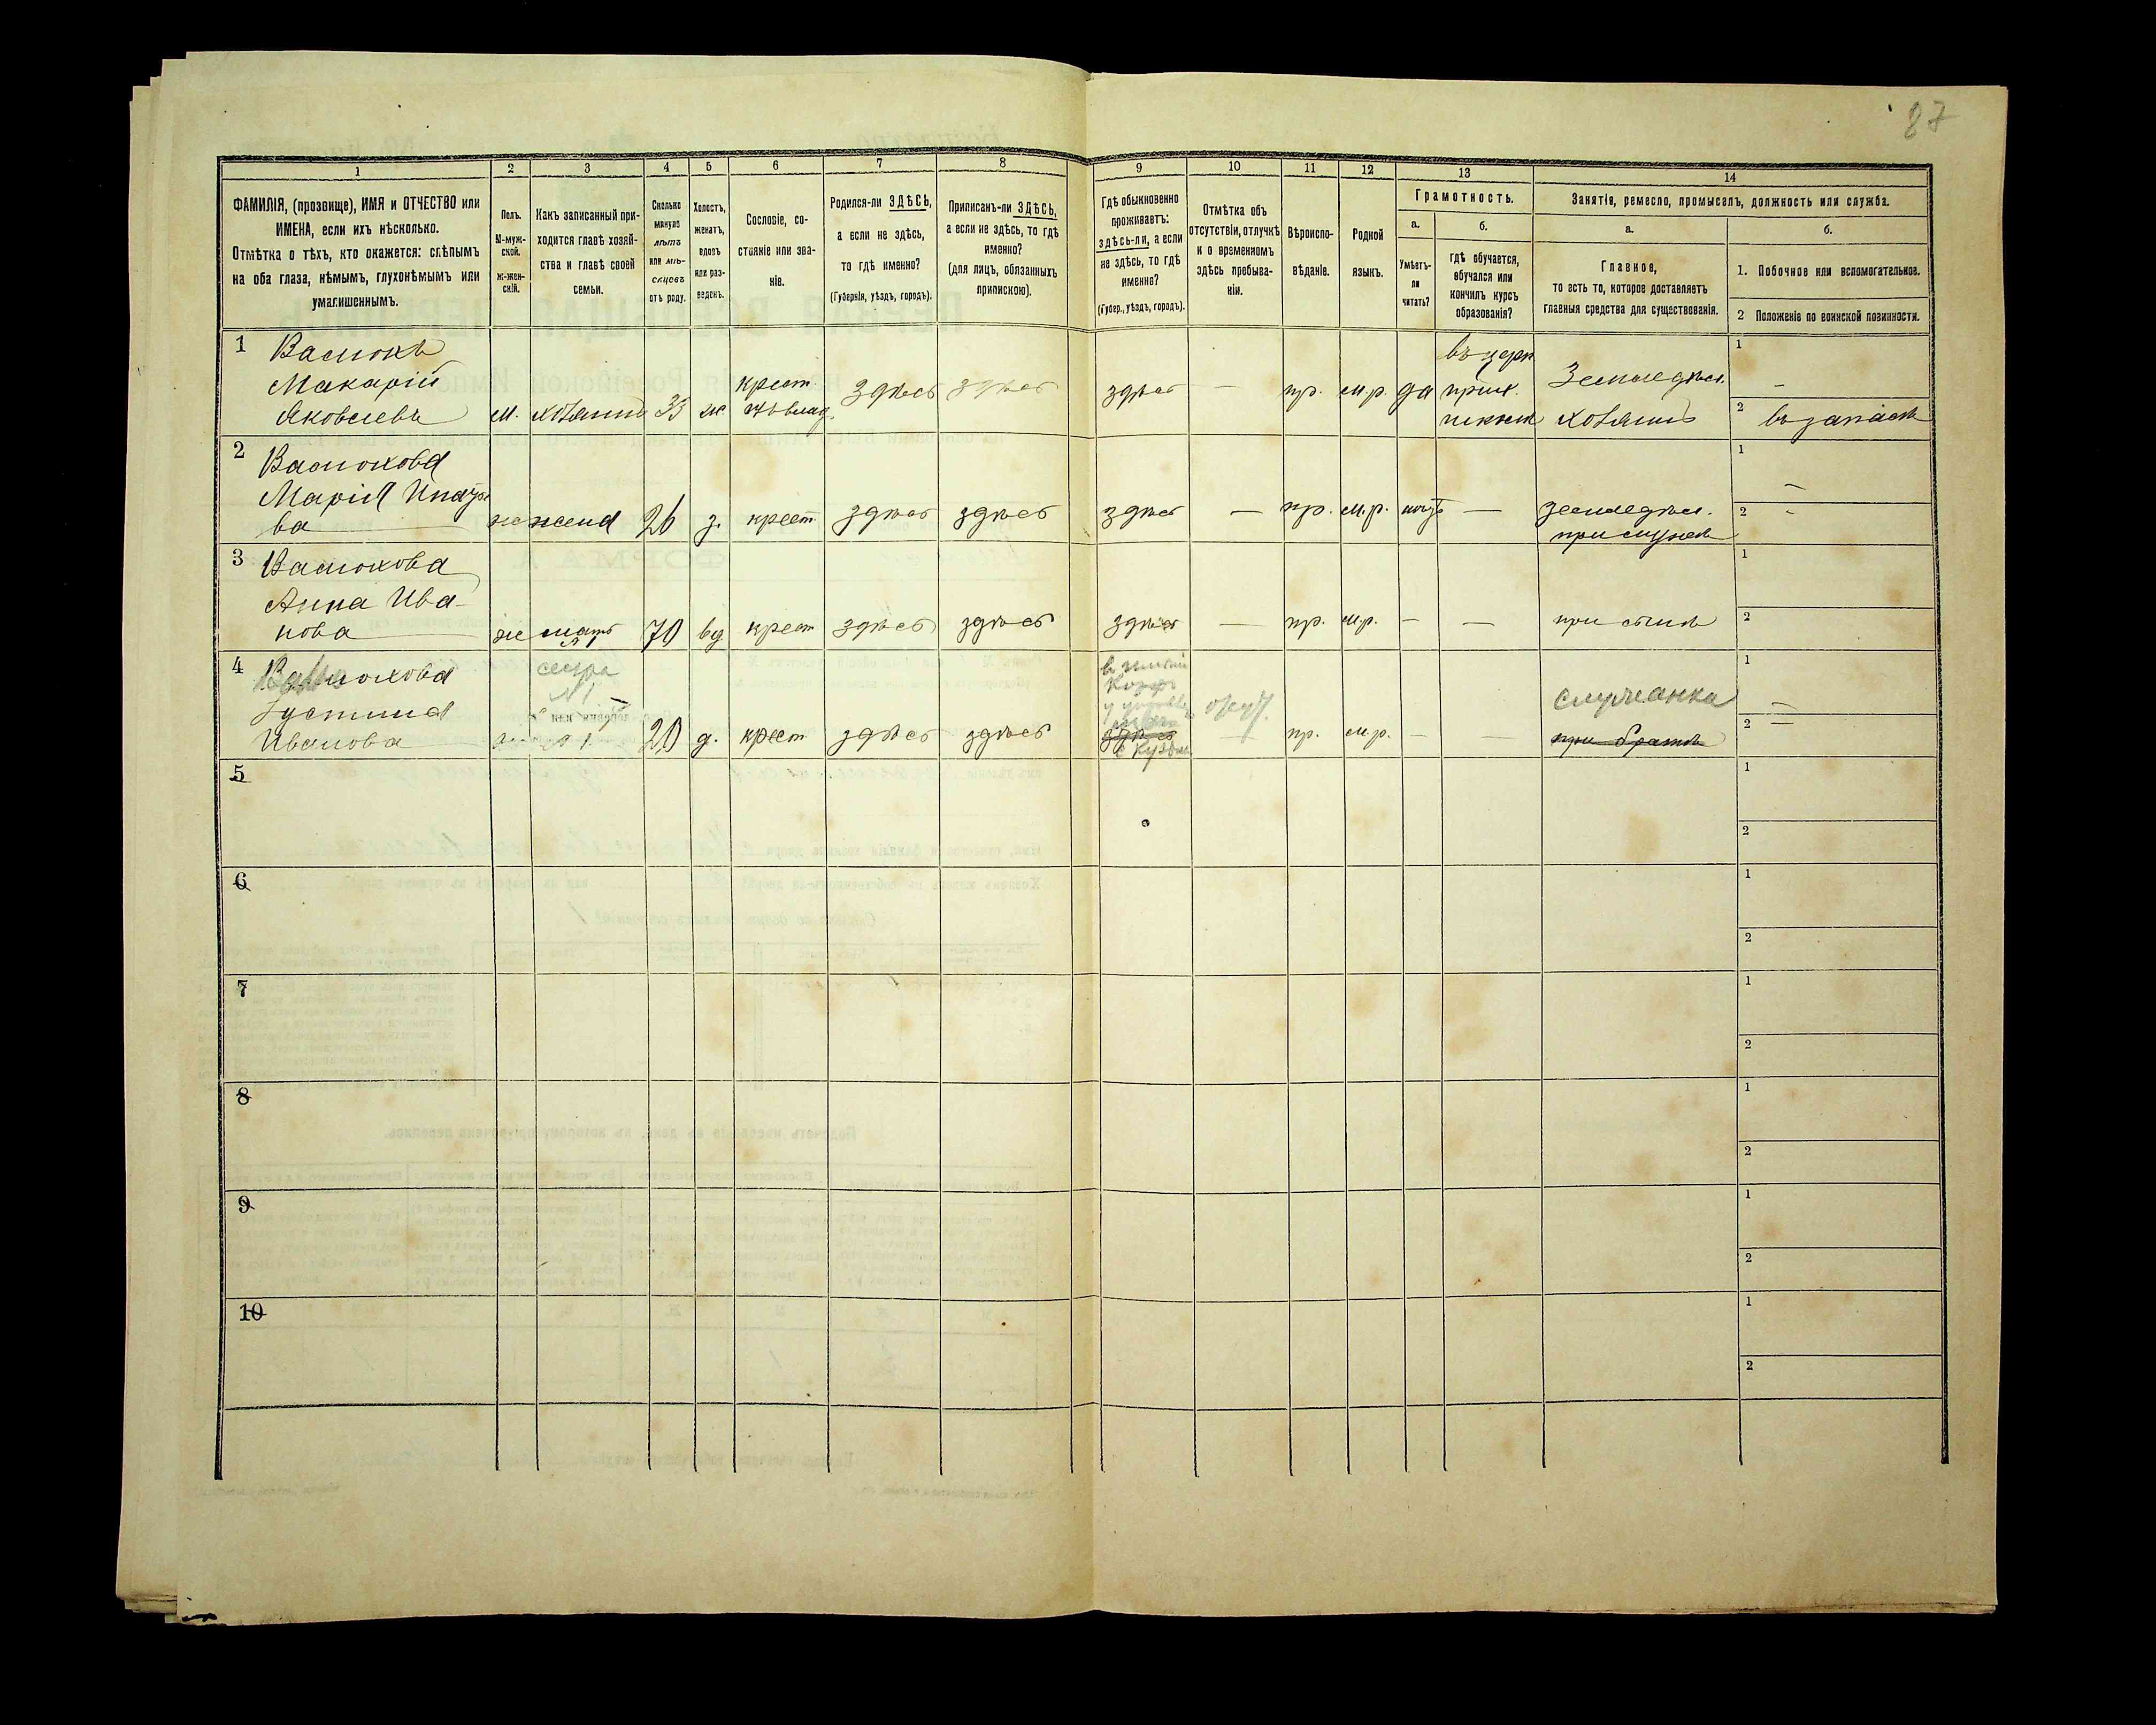 87
1 2 3 4 5 6 7 8 9 10 11 12 13 14
ФАМИЛІЯ, (прозвище), ИМЯ и ОТЧЕСТВО или
ИМЕНА, если ихъ нѣсколько.
Отмѣтка о тѣхъ, кто окажется: слѣпымъ
на оба глаза, нѣмымъ, глухонѣмымъ или
умалишеннымъ.
Полъ.
М-муж-
ской.
Ж-жен-
скій.
Какъ записанный при-
ходится главѣ хозяй-
ства и главѣ своей
семьи.
Сколько
минуло
лѣтъ
или мѣ-
сяцевъ
отъ роду.
Холостъ,
женатъ,
вдовъ
или раз-
веденъ.
Сословіе, со-
стояніе или зва-
ніе.
Родился-ли ЗДѢСЬ,
а если не здѣсь,
то гдѣ именно?
(Губернія, уѣздъ, городъ).
Приписанъ-ли ЗДѢСЬ,
а если не здѣсь, то гдѣ
именно?
(для лицъ, обязанныхъ
припискою).
Гдѣ обыкновенно
проживаетъ:
здѣсь-ли, а если
не здѣсь, то гдѣ
именно?
(Губер., уѣздъ, городъ).
Отмѣтка объ
отсутствіи, отлучкѣ
и о временномъ
здѣсь пребыва-
ніи.
Вѣроиспо-
вѣданіе.
Родной
языкъ.
Грамотность.
а.
Умѣетъ-
ли
читать?
б.
гдѣ обучается,
обучался или
кончилъ курсъ
образованія?
Занятія, ремесло, промыселъ, должность или служба.
а.
Главное,
то есть то, которое доставляетъ
главныя средства для существованія.
б.
1. Побочное или вспомогательное.
2 Положеніе по воинской повинности.
1 Васюкъ
Макарій
Яковлевъ м. хозяинъ 35 ж. крест.
здѣсь здѣсь здѣсь — пр. м.р. да
въ церк
прих.
Земледѣл.
хозяинъ
1 —
2 въ запасѣ
2 Васюкова
Марія
ва ж жена 26 з. крест здѣсь здѣсь здѣсь — пр. м.р. —
земледѣл.
при мужѣ
1 —
2 -
3 Васюкова
Анна Ива-
нова ж мать 70 вд крест здѣсь здѣсь здѣсь — пр. м.р. — — при сынѣ
1
2
4 Васюкова
Устинья
Иванова 20 д. крест здѣсь здѣсь здѣсь
сестра
№ 1
отсут.
— пр. м.р. — —
служанка
при братѣ
1 —
2 —
5
1
2
6
1
2
7
1
2
8
1
2
9
1
2
10
1
2